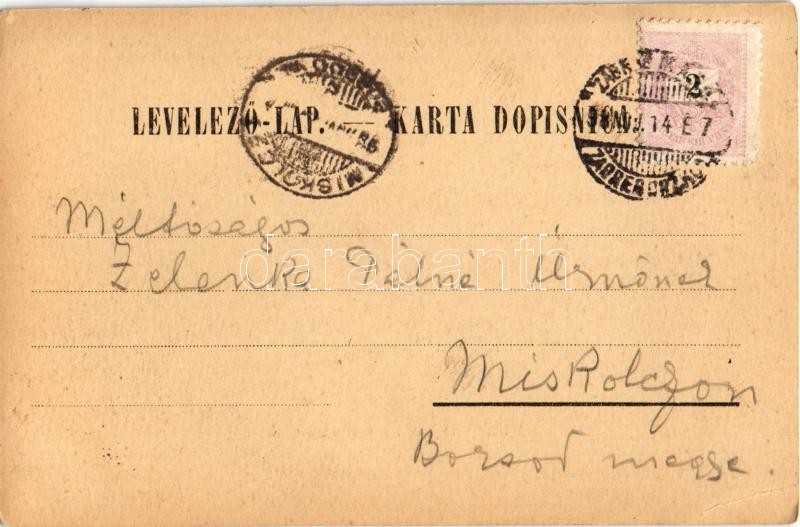 LEVELEZŐ-LAP. — KARTA DOPISNICA.
2
14 E 7
MISKOLCZ
Méltóságos
Zelenka Pálné Úrnőnek
Miskolczon
Borsod megye.
darabanth